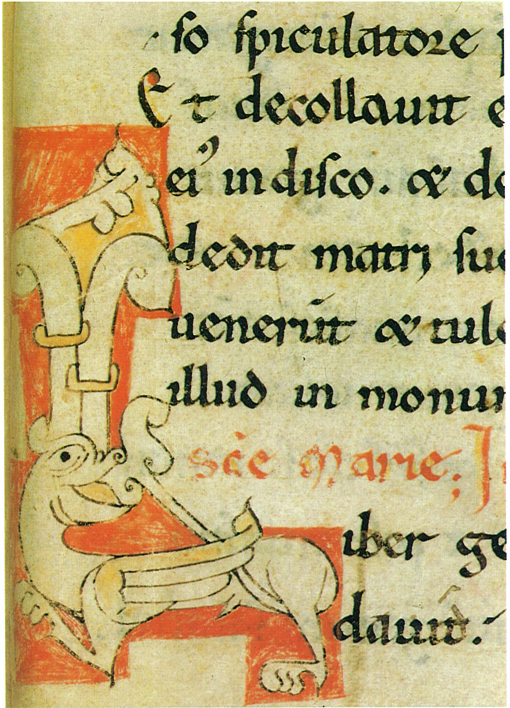 so spiculatore
Et decollauit e
ei᾽ in disco. & de
dedit matri sue
uenerūt & tule
illud in monum
sc̄e Marie. In
Liber ge
dauid.